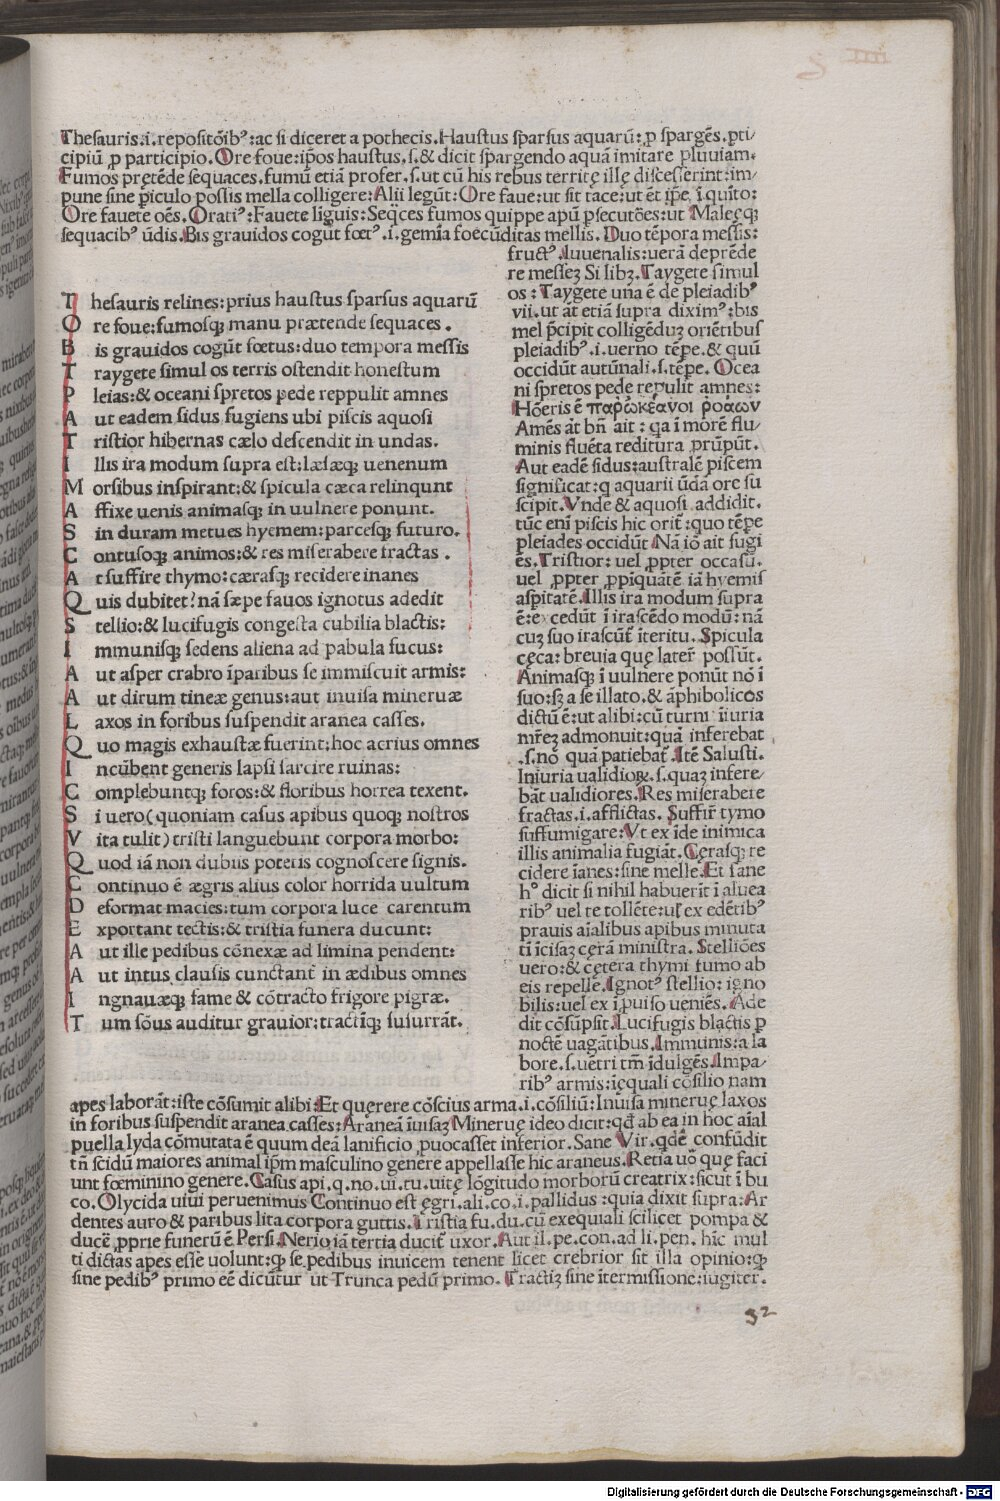 Thesauris.i.repositōibꝰ:ac si diceret a pothecis.Haustus sparsus aquarū:ꝓ spargēs.pti/
cipiū ꝓ participio.Ore foue:ip̄os haustus.s.& dicit spargendo aquā imitare pluuiam.
Fumos pręten̄de sequaces.fumū etiā profer.s.ut cū his rebus territę illę discesserint:im/
pune sine p̄iculo possis mella colligere:Alii legūt:Ore faue:ut sit tace:ut ēt ip̄e, ī quīto:
Ore fauete oēs.Oratiꝰ:Fauete līguis:Seq̄ces fumos quippe apū ꝑsecutōes:ut Maleęqꝫ
sequacibꝰ ūdis.Bis grauidos cogūt fœtꝰ.i.gemīa foecūditas mellis.Duo tēpora messis:
fructꝰ.Iuuenalis:uerā deprēde
re messeꝫ Si libꝫ.Taygete simul
os:Taygete una ē de pleiadibꝰ
vii.ut āt etiā supra diximꝰ:bis
mel p̄cipit colligēduꝫ oriētibus
pleiadibꝰ.i.uerno tēpe.& quū
occidūt autūnali.s.tēpe.Ocea
ni spretos pede repulit amnes:
Hōeris ē παρώκέανοι ῥοαων
Amēs āt bn̄ ait:qa ī morē flu/
minis fluēta reditura prūpūt.
Aut eadē sidus:australē piscem
significat:q aquarii ūda ore su
scipit.Vnde & aquosi.addidit.
tūc eni piscis hic orit̄:quo tēpe
pleiades occidūt Nā iō ait fugi
ēs.Tristior:uel ꝓpter occasū.
uel ꝓpter ꝓpiquātē iā hyemis
aspitatē.Illis ira modum supra
ē:excedūt ī irascēdo modū:nā
cuꝫ suo irascūt̄ īteritu.Spicula
cęca:breuia quę later̄ possūt.
Animasqꝫ ī uulnere ponūt nō ī
suo:sꝫ a se illato.& āphibolicos
dictū ē:ut alibi:cū turni īiuria
mr̄eꝫ admonuit:quā inferebat
.s.nō quā patiebat̄.Itē Salusti.
Iniuria ualidioꝝ.s.quaꝫ infere/
bāt ualidiores.Res miserabere
fractas.i.afflictas.Suffir̄ tymo
suffumigare:Vt ex īde inimica
illis animalia fugiāt.Cęrasqꝫ re
cidere īanes:sine melle.Et sane
hꝰ dicit si nihil habuerit ī aluea
ribꝰ uel te tollēte:uel ex edētibꝰ
prauis aīalibus apibus minuta
tī īcisaꝫ cęrā ministra.Stelliōes
uero:& cętera thymi fumo ab
eis repelle.Ignotꝰ stellio:igno
bilis:uel ex īpuiso ueniēs.Ade
dit cōsūpsit.Lucifugis blactis p
noctē uagātibus.Immunis:a la
bore.s.uetri tm̄ īdulgēs.Impa/
ribꝰ armis:ięquali cōsilio nam
Thesauris relines:prius haustus sparsus aquarū
Ore foue:fumosqꝫ manu prætende sequaces.
Bis grauidos cogūt fœtus:duo tempora messis
Traygete simul os terris ostendit honestum
Pleias:& oceani spretos pede reppulit amnes
Aut eadem sidus fugiens ubi piscis aquosi
Tristior hibernas cælo descendit in undas.
Illis ira modum supra est:læsæqꝫ uenenum
Morsibus inspirant:& spicula cæca relinqunt
Affixe uenis animasqꝫ in uulnere ponunt.
Sin duram metues hyemem:parcesqꝫ futuro.
Contusoqꝫ animos:& res miserabere fractas.
At suffire thymo:cærasqꝫ recidere inanes
Quis dubitet?nā sæpe fauos ignotus adedit
Stellio:& lucifugis congesta cubilia blactis:
Immunisqꝫ sedens aliena ad pabula fucus:
Aut asper crabro īparibus se immiscuit armis:
Aut dirum tineæ genus:aut inuisa mineruæ
Laxos in foribus suspendit aranea casses.
Quo magis exhaustæ fuerint:hoc acrius omnes
Incūbent generis lapsi sarcire ruinas:
Complebuntqꝫ foros:& floribus horrea texent.
Si uero(quoniam casus apibus quoqꝫ nostros
Vita tulit)tristi languebunt corpora morbo:
Quod iā non dubiis poteris cognoscere signis.
Continuo ē ægris alius color horrida uultum
Deformat macies:tum corpora luce carentum
Exportant tectis:& tristia funera ducunt:
Aut ille pedibus cōnexæ ad limina pendent:
Aut intus clausis cunctant̄ in ædibus omnes
Ingnauæqꝫ fame & cōtracto frigore pigræ.
Tum sōus auditur grauior:tractīqꝫ susurrāt.
apes laborāt:iste cōsumit alibi:Et quęrere cōscius arma.i.cōsiliū:Inuisa mineruę laxos
in foribus suspendit aranea casses:Araneā iuisaꝫ Mineruę ideo dicit:qđ ab ea in hoc aīal
puella lyda cōmutata ē quum deā lanificio ꝓuocasset inferior.Sane Vir.qdē confūdit
tn̄ scidū maiores animal ip̄m masculino genere appellasse hic araneus.Retia uō quę faci
unt fœminino genere.Casus api.q.no.ui.tu.uitę lōgitudo morborū creatrix:sicut ī bu
co.Olycida uiui peruenimus Continuo est ęgri.ali.co.i.pallidus:quia dixit supra:Ar
dentes auro & paribus lita corpora guttis.Tristia fu.du.cū exequiali scilicet pompa &
ducē ꝓprie funerū ē Persi.Nerio iā tertia ducit̄ uxor.Aut il.pe.con.ad li.pen.hic mul
ti dictas apes esse uolunt:qꝫ se pedibus inuicem tenent licet crebrior sit illa opinio:qꝫ
sine pedibꝰ primo eē dicūtur ut Trunca pedū primo.Tractiꝫ sine ītermissione:iugiter.
32
Digitalisierung gefördert durch die Deutsche Forschungsgemeinschaft - DFG